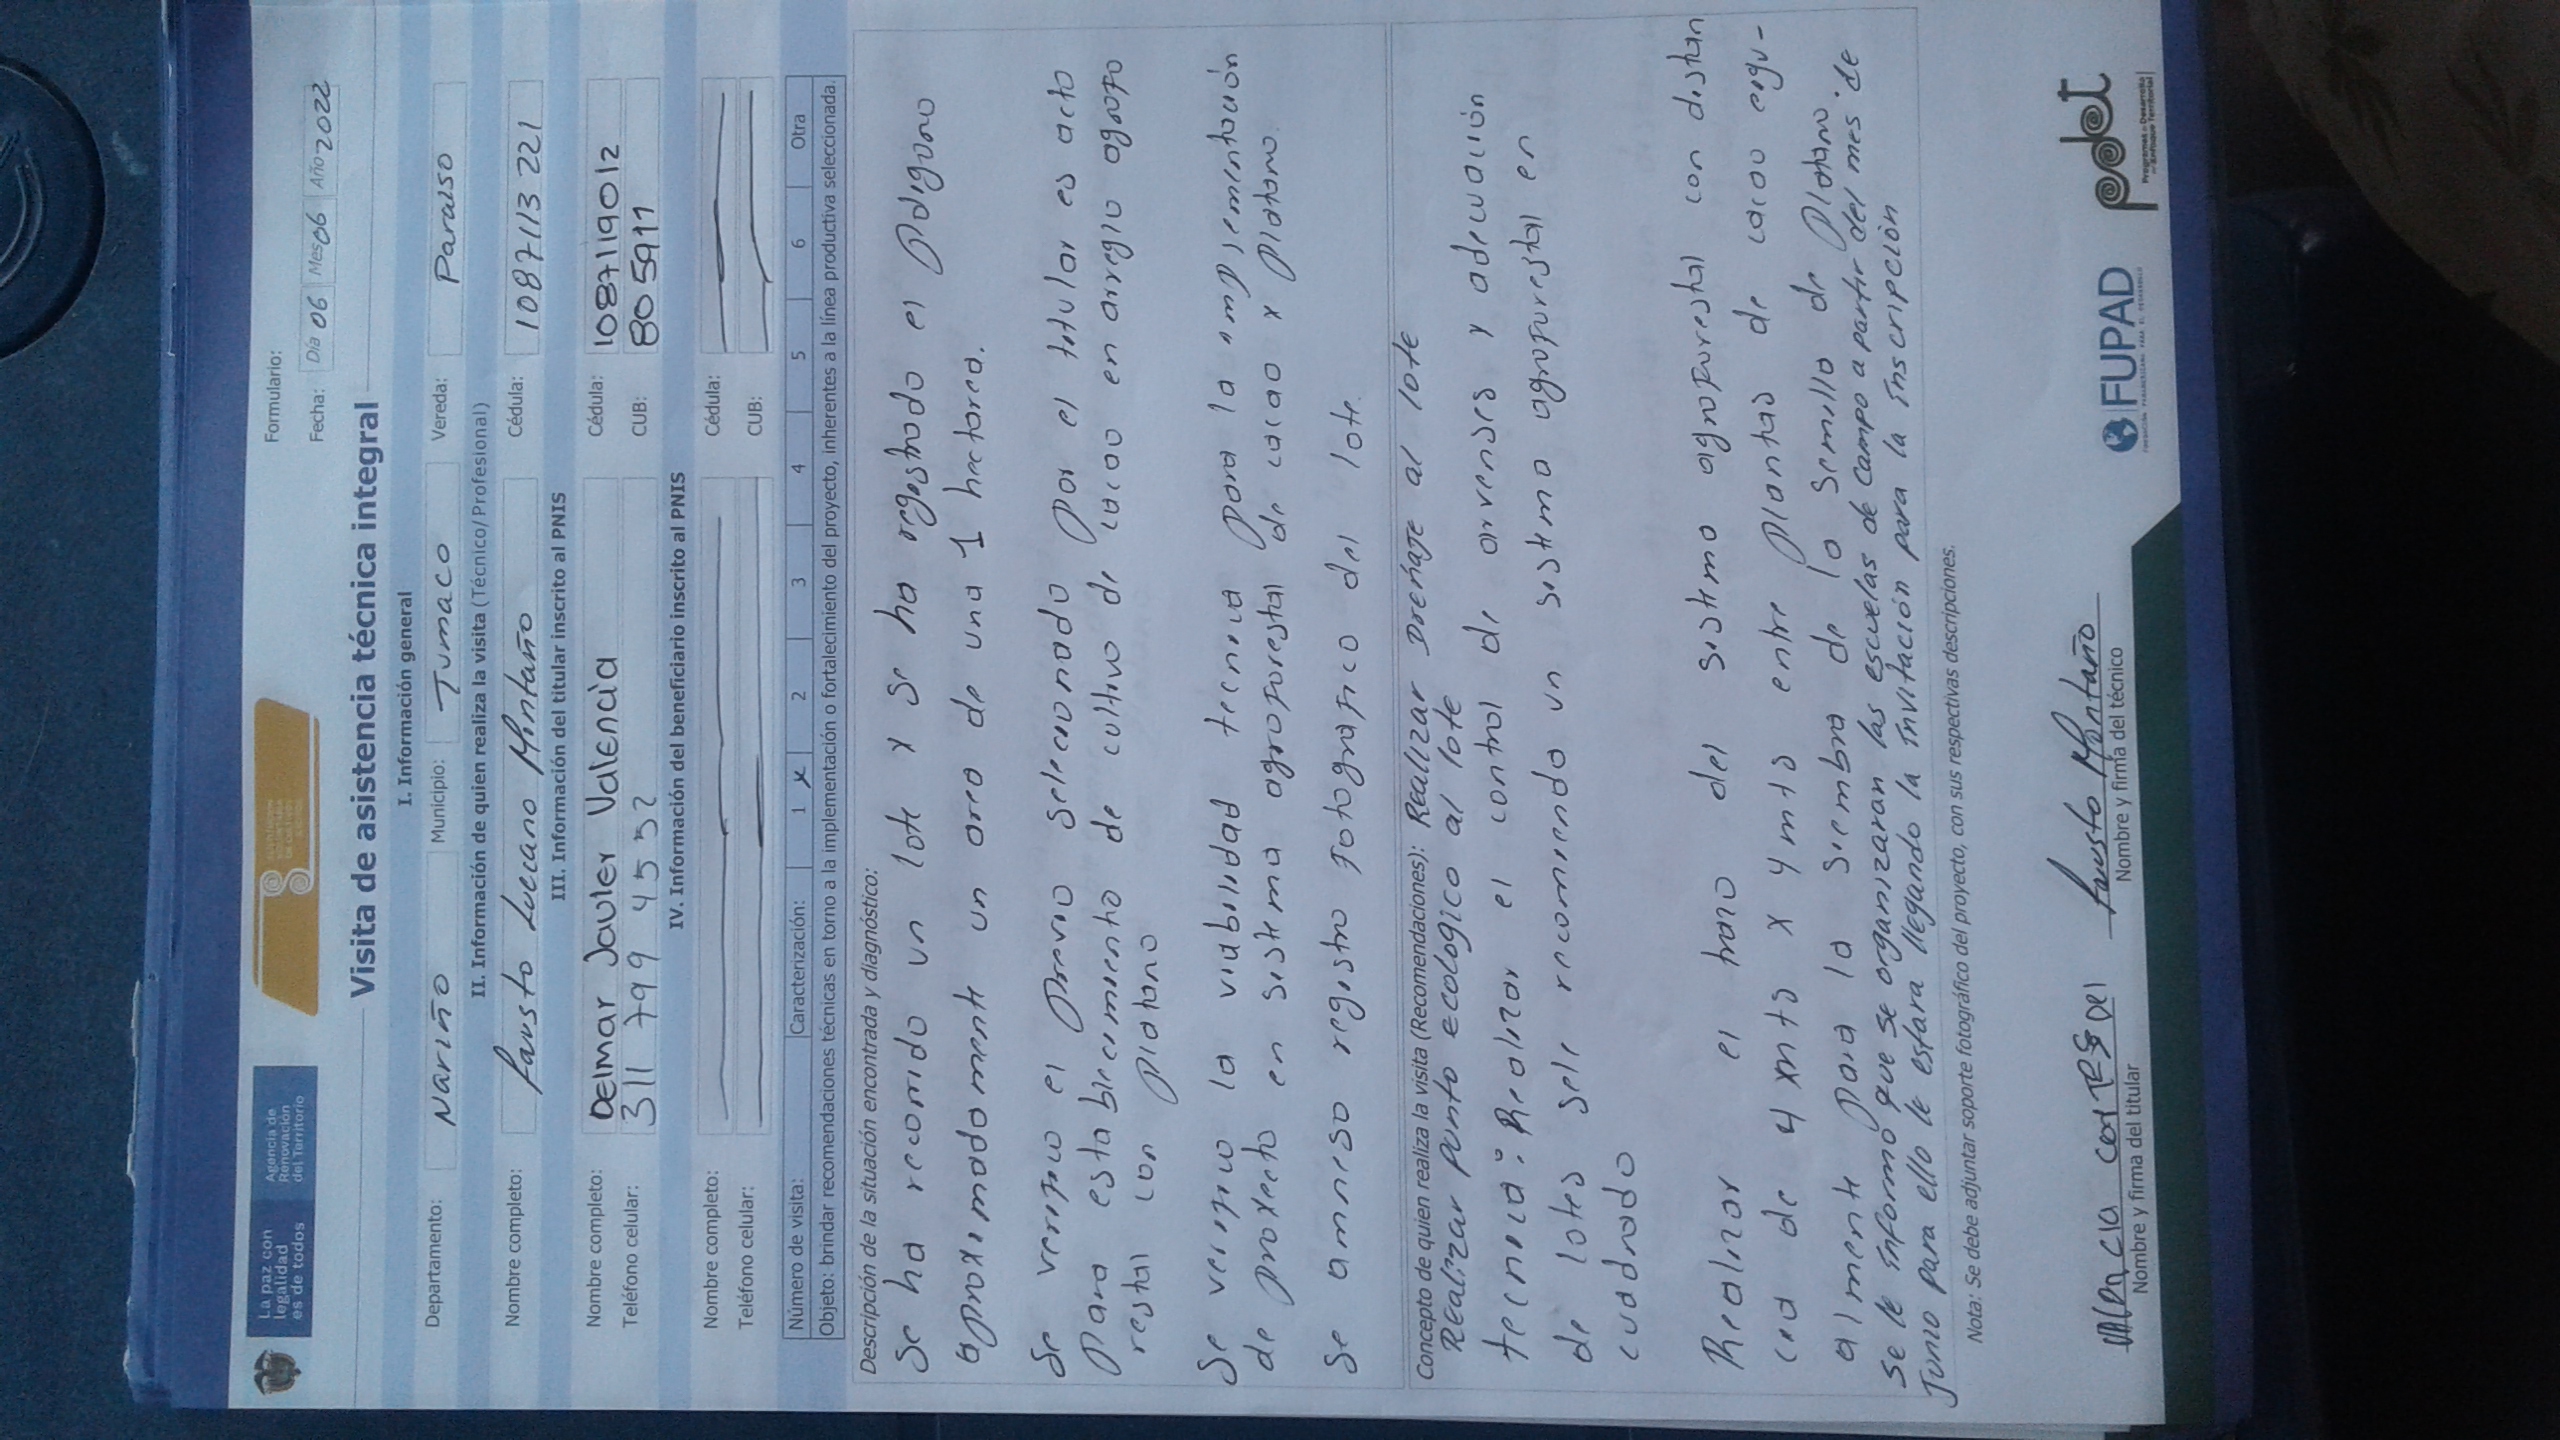 La paz con
legalidad
es de todos
Agencia de
Renovación
del Territorio
Formulario:
Fecha: Día 06 Mes 06 Año 2022
Visita de asistencia técnica integral
I. Información general
Departamento: Nariño Municipio: Tumaco Vereda: Paraiso
II. Información de quien realiza la visita (Técnico/Profesional)
Nombre completo: Fausto Lucano Montaño Cédula: 1087113221
III. Información del titular inscrito al PNIS
Nombre completo: Delmar Javier Valencia Cédula: 1087119012
Teléfono celular: 311 799 4552 CUB: 805911
IV. Información del beneficiario inscrito al PNIS
Nombre completo: Cédula:
Teléfono celular: CUB:
Número de visita: Caracterización: 1 x 2 3 4 5 6 Otra
Objeto: brindar recomendaciones técnicas en torno a la implementación o fortalecimiento del proyecto, inherentes a la línea productiva seleccionada.
Descripción de la situación encontrada y diagnóstico:
Se ha recorrido un lote y se ha registrado el poligono
aproximadamente un area de una 1 hectarea.
Se verifico el previo seleccionado por el titular es acto
para establecimiento de cultivo de cacao en arreglo agrofo
restal con platano
Se verifico la viabilidad tecnica para la implementación
de proyecto en sistema agroforestal de cacao x platano.
Se anexo registro fotografico del lote.
Concepto de quien realiza la visita (Recomendaciones): Realizar Dreñaje al lote
Realizar punto ecologico al lote
tecnica: Realizar el control de arvenses y adecuación
de lotes sele recomienda un sistema agroforestal en
cuadrado
Realizar el trazo del sistema agroforestal con distan
cia de 4 mts x 4 mts entre plantas de cacao engu-
almente para la siembra de la semilla de platano.
Se le informo que se organizaran las escuelas de campo a partir del mes de
Junio para ello le estara llegando la invitación para la inscripción
Nota: Se debe adjuntar soporte fotográfico del proyecto, con sus respectivas descripciones.
Valencia Cortes Del
Nombre y firma del titular
Fausto Montaño
Nombre y firma del técnico
FUPAD
pdet
Programas de Desarrollo
con Enfoque Territorial